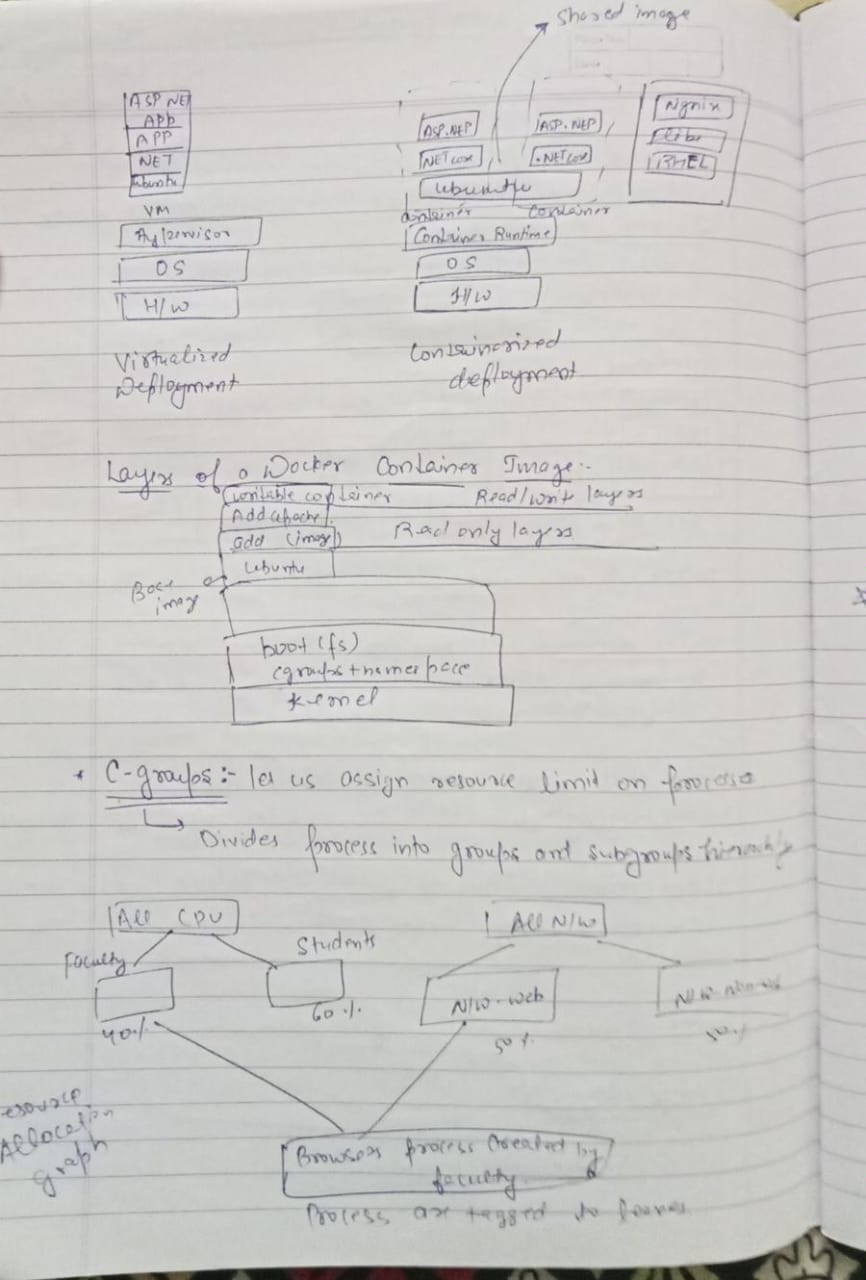 Shared image
ASP NE
APP
APP
NET
ubuntu
VM
Hypervisor
OS
H/W
Virtualized
Deployment
ASP.NEP
ASP.NEP
NET core
.NET core
ubuntu
container
container
Container Runtime
OS
H/W
Containerized
deployment
Ngnix
libs
RHEL
Layers of a Docker Container Image:-
Writable container Read/write layers
Add apache
add (image) Read only layers
ubuntu
Base
image
boot (fs)
cgroups + namespace
kernel
* C-groups :- let us assign resource limit on process
Divides process into groups and subgroups hierarchy
All CPU
Faculty
Students
40%
60%
All N/W
N/W-web
50%
50%
esource
Allocation
graph
Browser process created by
faculty
Process are tagged to leaves